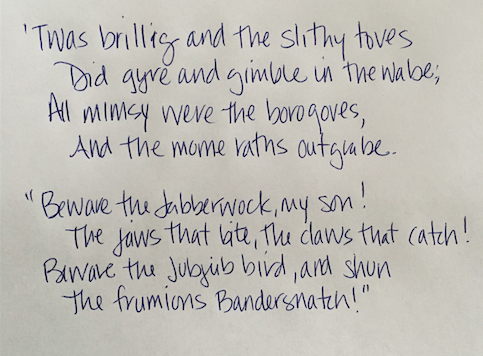 'Twas brillig and the slithy toves
Did gyre and gimble in the wabe;
All mimsy were the borogoves,
And the mome raths outgrabe.
"Beware the Jabberwock, my son!
The jaws that bite, the claws that catch!
Beware the Jubjub bird, and shun
The frumions Bandersnatch!"